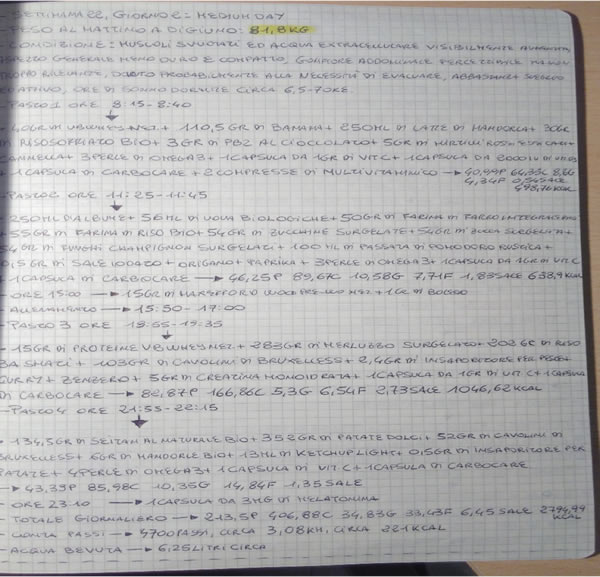 - SETTIMANA 22, GIORNO 2: MEDIUM DAY
- PESO AL MATTINO A DIGIUNO: 81,8KG
- CONDIZIONE: MUSCOLI SVUOTATI ED ACQUA EXTRACELLULARE VISIBILMENTE AUMENTATA,
ASPETTO GENERALE MENO DURO E COMPATTO, GONFIORE ADDOMINALE PERCEPIBILE MA NON
TROPPO RILEVANTE, DOVUTO PROBABILMENTE ALLA NECESSITÀ DI EVACUARE, ABBASTANZA
ED ATTIVO, ORE DI SONNO DORMITE CIRCA 6,5-7 ORE.
- PASTO 1 ORE 8:15-8:40
- 40GR DI + 110,5GR DI BANANA + 250ML DI LATTE DI MANDORLA + 30GR
DI RISOSOFFIATO BIO + 3GR DI PB2 AL CIOCCOLATO + 5GR DI
CANNELLA + 3PERLE DI OMEGA3 + 1CAPSULA DA 1GR DI VIT C + 1CAPSULA DA 2000IU DI
+ 1CAPSULA DI CARBOCARE + 2COMPRESSE DI MULTIVITAMINICO → 40,99P 8,6G
4,34F 0,54SALE
498,76KCAL
- PASTO 2 ORE 11:25-11:45
- 250ML D'ALBUME + 56ML DI UOVA BIOLOGICHE + 50GR DI FARINA DI FARRO INTEGRALE
+ 55GR DI FARINA DI RISO BIO + 54GR DI ZUCCHINE SURGELATE + 54GR DI ZUCCA SURGELATA +
54GR DI FUNGHI CHAMPIGNON SURGELATI + 100ML DI PASSATA DI POMODORO RUSTICA +
0,5GR DI SALE IODATO + ORIGANO + PAPRIKA + 3PERLE DI OMEGA3 + 1CAPSULA DA 1GR DI VIT C
1CAPSULA DI CARBOCARE → 46,25P 89,67C 10,58G 7,71F 1,83SALE 638,9KCAL
- ORE 15:00 → 15GR DI + 1GR DI
- ALLENAMENTO → 15:50-17:00
- PASTO 3 ORE 18:55-19:35
- 15GR DI PROTEINE + 283GR DI MERLUZZO SURGELATO + 202GR DI RISO
BASMATI + 103GR DI CAVOLINI DI BRUXELLESS + 2,4GR DI INSAPORITORE PER PESCE +
CURRY + ZENZERO + 5GR DI CREATINA MONOIDRATA + 1CAPSULA DA 1GR DI VIT C + 1CAPSULA
DI CARBOCARE → 82,87P 166,86C 5,3G 6,54F 2,73SALE 1046,62KCAL
- PASTO 4 ORE 21:55-22:15
- 134,5GR DI SEITAN AL NATURALE BIO + 352GR DI PATATE DOLCI + 52GR DI CAVOLINI DI
BRUXELLESS + 6GR DI MANDORLE BIO + 13ML DI KETCHUP LIGHT + 0,5GR DI INSAPORITORE PER
PATATE + 4PERLE DI OMEGA3 + 1CAPSULA DI VIT C + 1CAPSULA DI CARBOCARE
→ 43,39P 85,98C 10,35G 14,84F 1,35SALE
- ORE 23:10 → 1CAPSULA DA 3MG DI MELATONINA
- TOTALE GIORNALIERO → 213,5P 406,88C 34,83G 33,43F 6,45SALE 2794,99
KCAL
- CONTA PASSI → 4700PASSI, CIRCA 3,08KM, CIRCA 221KCAL
- ACQUA BEVUTA → 6,25LITRI CIRCA